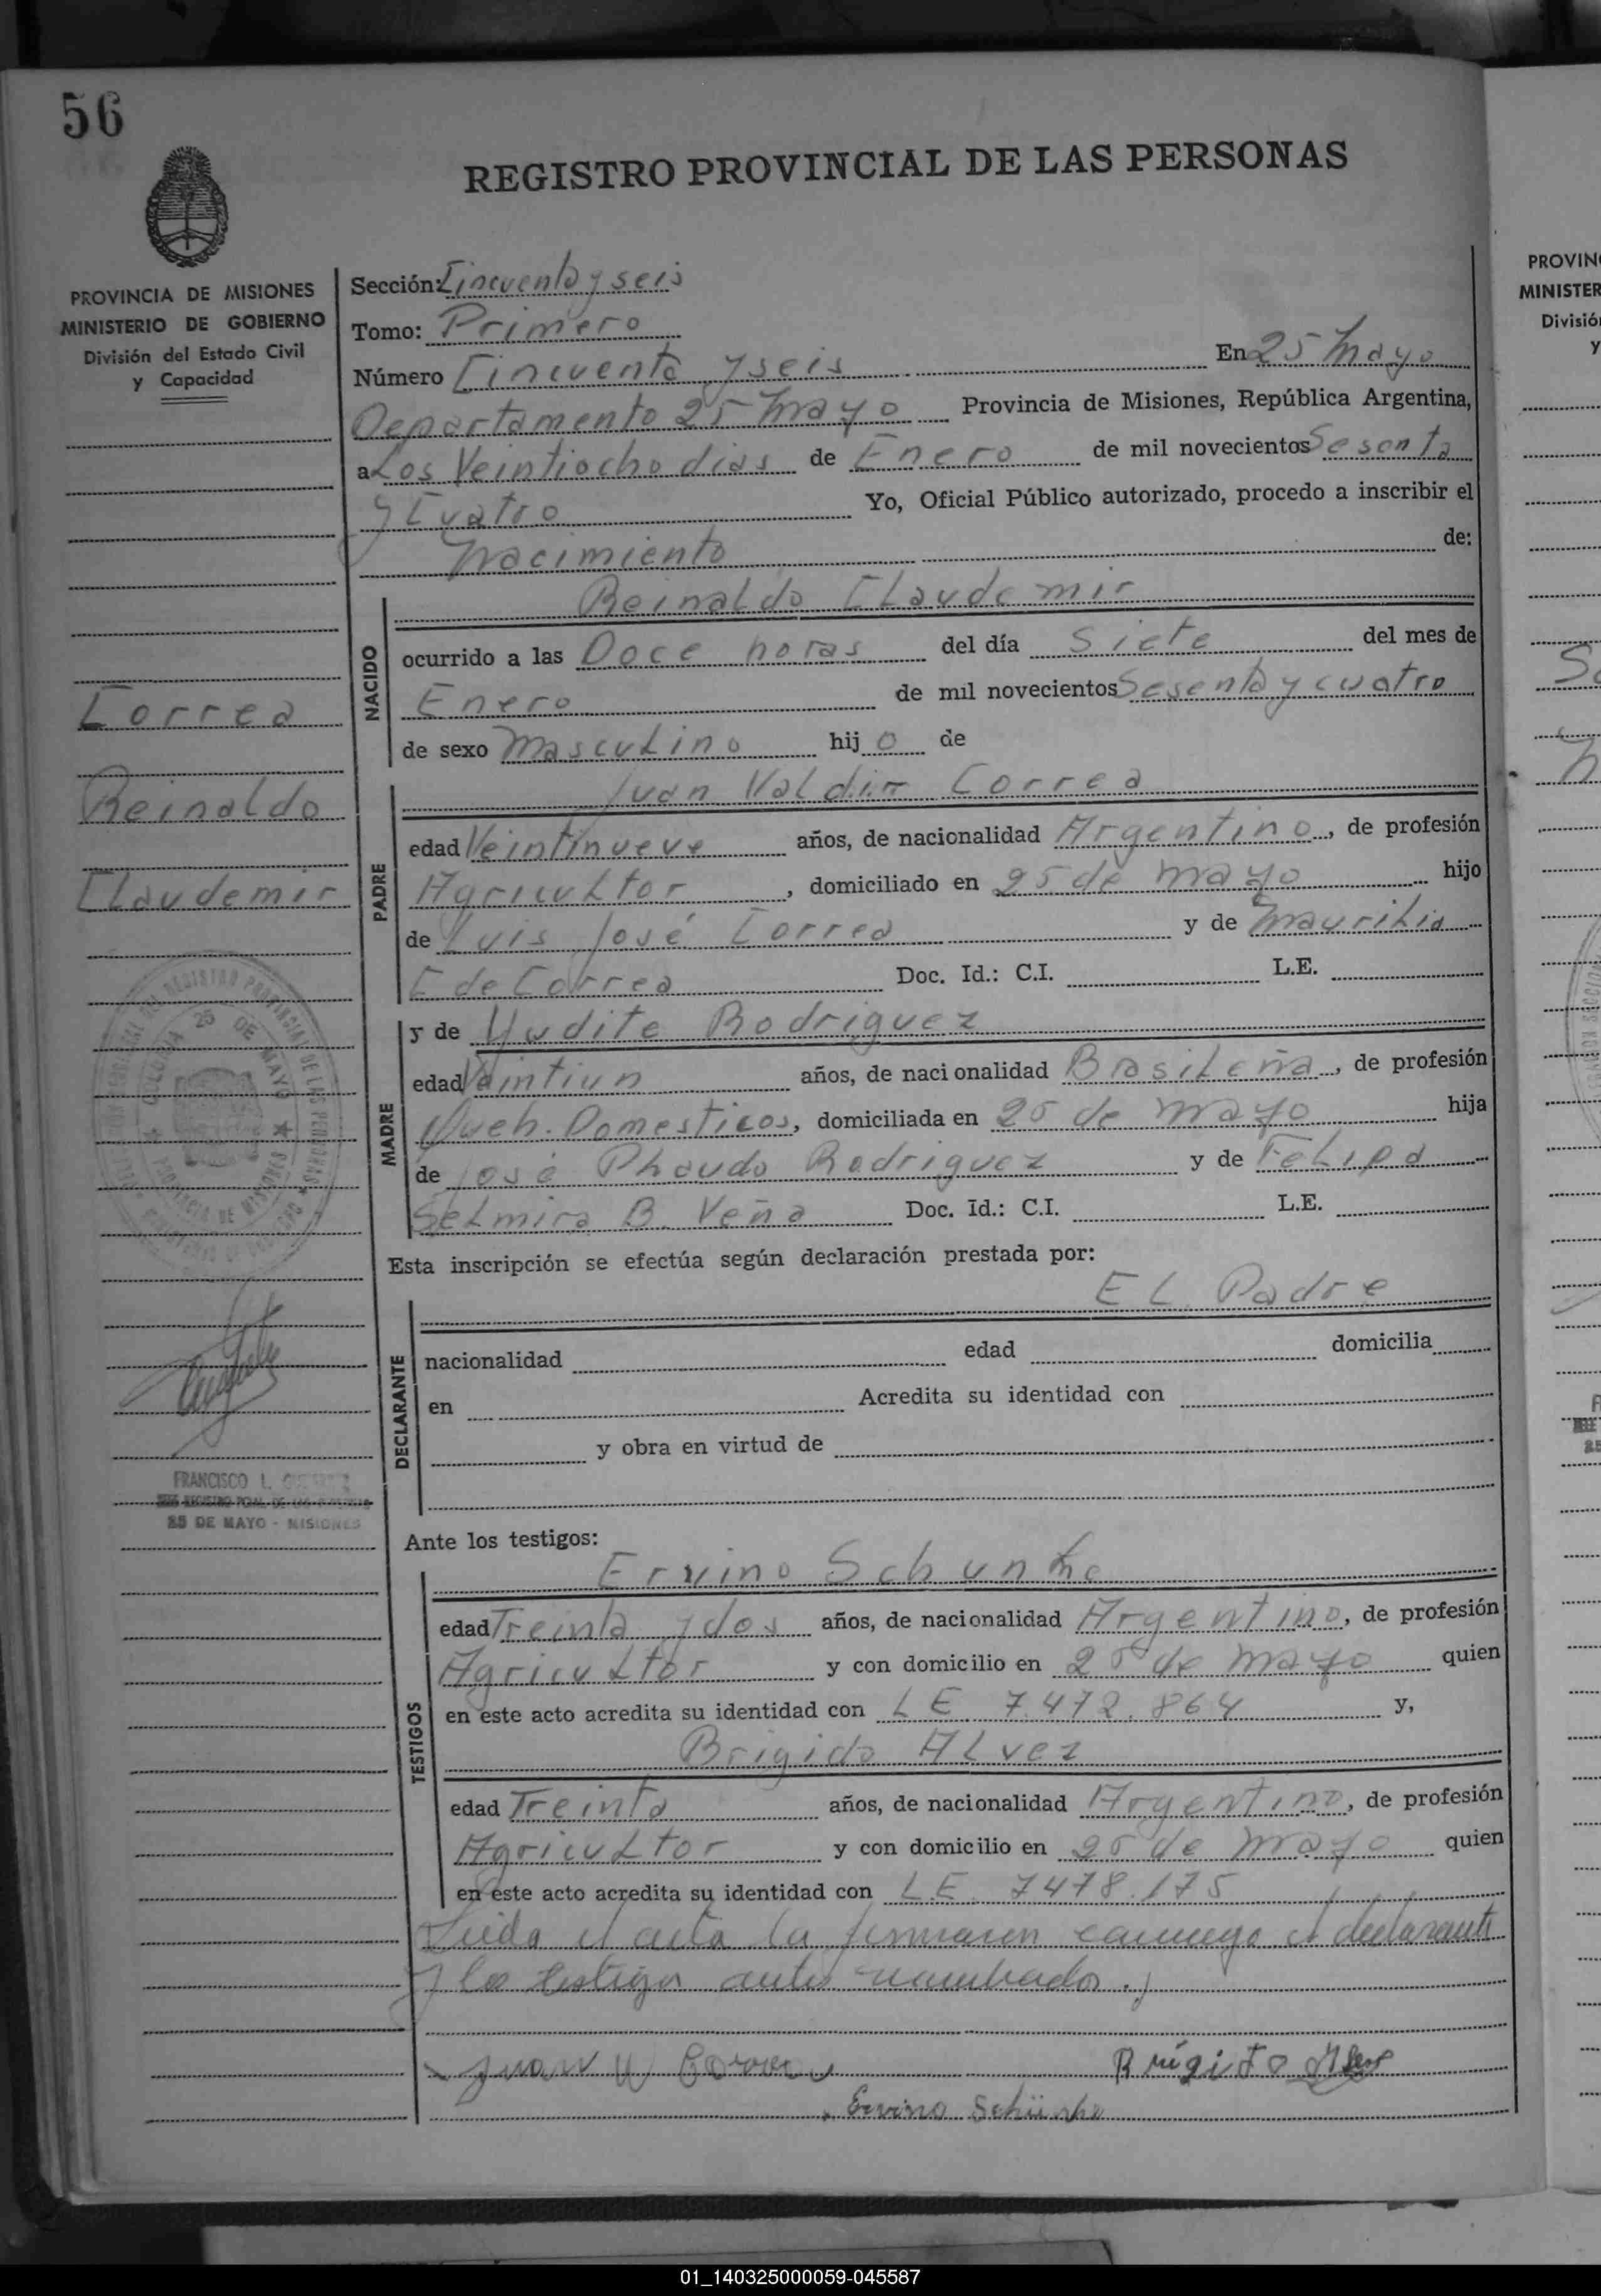 56
REGISTRO PROVINCIAL DE LAS PERSONAS
PROVINCIA DE MISIONES
MINISTERIO DE GOBIERNO
División del Estado Civil
y Capacidad
Correa
Reinaldo
Claudemir
COLONIA 25 DE MAYO
PROVINCIA DE MISIONES
FRANCISCO I.
25 DE MAYO - MISIONES
Sección: Cincuenta y seis
Tomo: Primero
Número Cincuenta y seis En 25 Mayo
Departamento 25 Mayo Provincia de Misiones, República Argentina,
a Los Veintiocho dias de Enero de mil novecientos Sesenta
y Cuatro Yo, Oficial Público autorizado, procedo a inscribir el
Nacimiento de:
NACIDO
Reinaldo Claudemir
ocurrido a las Doce horas del día Siete del mes de
Enero de mil novecientos Sesenta y cuatro
de sexo Masculino hijo de
PADRE
Juan Valdir Correa
edad Veintinueve años, de nacionalidad Argentino, de profesión
Agricultor, domiciliado en 25 de Mayo hijo
de Luis José Correa y de Maurilia
C de Correa Doc. Id.: C.I. L.E.
MADRE
y de Yudite Rodriguez
edad Vaintiun años, de nacionalidad Brasileña, de profesión
Queh. Domesticos, domiciliada en 25 de Mayo hija
de José Rodriguez y de Felipa
Selmira B. Veña Doc. Id.: C.I. L.E.
Esta inscripción se efectúa según declaración prestada por:
DECLARANTE
EL Padre
nacionalidad edad domicilia
en Acredita su identidad con
y obra en virtud de
Ante los testigos:
TESTIGOS
Ervino Schunke
edad Treinta y dos años, de nacionalidad Argentino, de profesión
Agricultor y con domicilio en 25 de Mayo quien
en este acto acredita su identidad con L E 7.472.864 y,
Brigido Alvez
edad Treinta años, de nacionalidad Argentino, de profesión
Agricultor y con domicilio en 25 de Mayo quien
en este acto acredita su identidad con L.E. 7478.175
Leida el acta la firmaron conmigo el declarante
y los testigos antes nombrados.
Juan W Correa
Ervino Schünke
PROVIN
MINISTER
Divisió
y
01_140325000059-045587